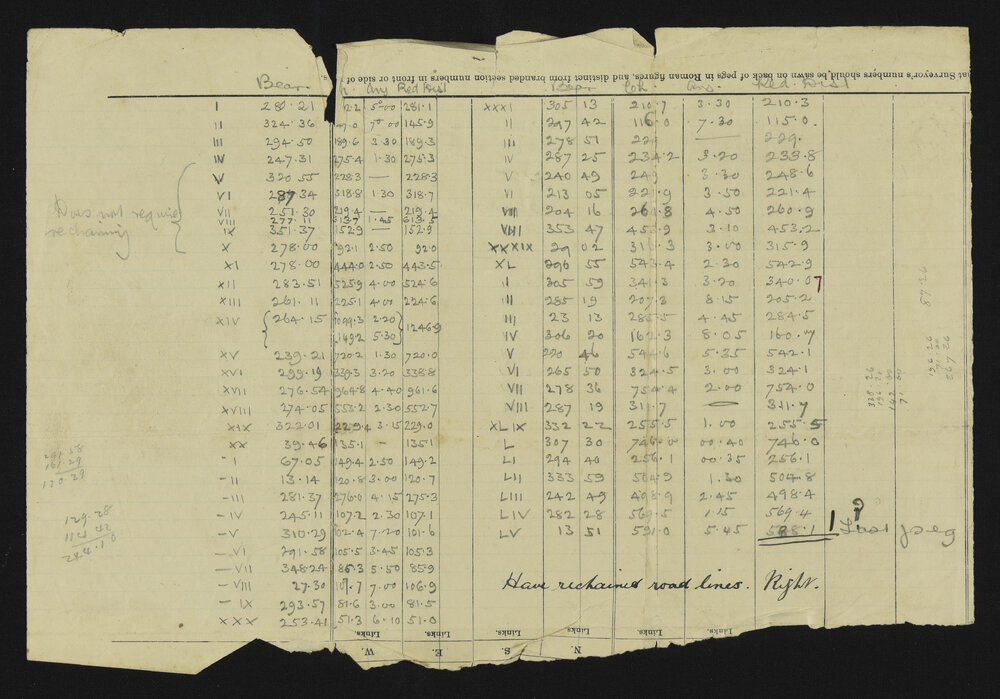 at Surveyor's numbers should be sawn on back of pegs in Roman figures, and distinct from branded section numbers in front or side of
Bear. h. Ang Red Dist
I 280.21 2.2 5.00 281.1
II 324.36 47.0 7.00 145.9
III 294.50 189.6 3.30 189.3
IV 247.31 275.4 1.30 275.3
V 320.55 228.3 — 228.3
VI 287.34 318.8 1.30 318.7
VII 251.30 219.4 — 219.4
VIII 277.11 613.7 1.45 613.5
IX 351.37 152.9 — 152.9
Does not require
rechaining
X 278.00 92.1 2.50 92.0
XI 278.00 444.0 2.50 443.5
XII 283.51 525.9 4.00 524.6
XIII 261.11 225.1 4.00 224.6
XIV 264.15 1099.3 2.20
149.2 5.30 1246.9
XV 239.21 720.2 1.30 720.0
XVI 299.19 339.3 3.20 338.8
XVII 276.54 964.8 4.40 961.6
XVIII 274.05 553.2 2.30 552.7
XIX 322.01 229.4 3.15 229.0
XX 39.46 135.1 — 135.1
- I 67.05 149.4 2.50 149.2
- II 13.14 120.8 3.00 120.7
- III 281.37 276.0 4.15 275.3
- IV 245.11 107.2 2.30 107.1
- V 310.29 102.4 7.20 101.6
- VI 291.58 105.5 3.45 105.3
- VII 348.24 86.3 5.50 85.9
- VIII 27.30 107.7 7.00 106.9
- IX 293.57 81.6 3.00 81.5
XXX 253.41 51.3 6.10 51.0
Bear Ch. Ang. Red. Dist
XXXI 305 13 210.7 3.30 210.3
II 297 42 116.0 7.30 115.0
III 278 51 229 — 229.
IV 287 25 234.2 3.20 233.8
V 240 49 249 3.30 248.6
VI 213 05 221.9 3.50 221.4
VII 204 16 261.8 4.50 260.9
VIII 353 47 453.9 3.10 453.2
XXXIX 29 02 316.3 3.00 315.9
XL 296 55 543.4 2.30 542.9
I 305 59 341.3 3.20 340.07
II 285 19 207.3 8.15 205.2
III 23 13 285.5 4.45 284.5
IV 306 20 162.3 8.05 160.7
V 220 46 544.6 5.35 542.1
VI 265 50 324.5 3.00 324.1
VII 278 36 754.4 2.00 754.0
VIII 287 19 311.7 — 311.7
XLIX 332 22 255.5 1.00 255.5
L 307 30 746.0 00.40 746.0
LI 294 40 256.1 00.35 256.1
LII 333 59 504.9 1.30 504.8
LIII 242 49 498.9 2.45 498.4
LIV 282 28 569.5 1.15 569.4
LV 13 51 591.0 5.45 588.1 ? Last peg
Have rechained road lines. Right.
291.58
120.29
129.28
244.10
87.26
Links. Links. Links. Links. Links. Links.
W. E. S. N.